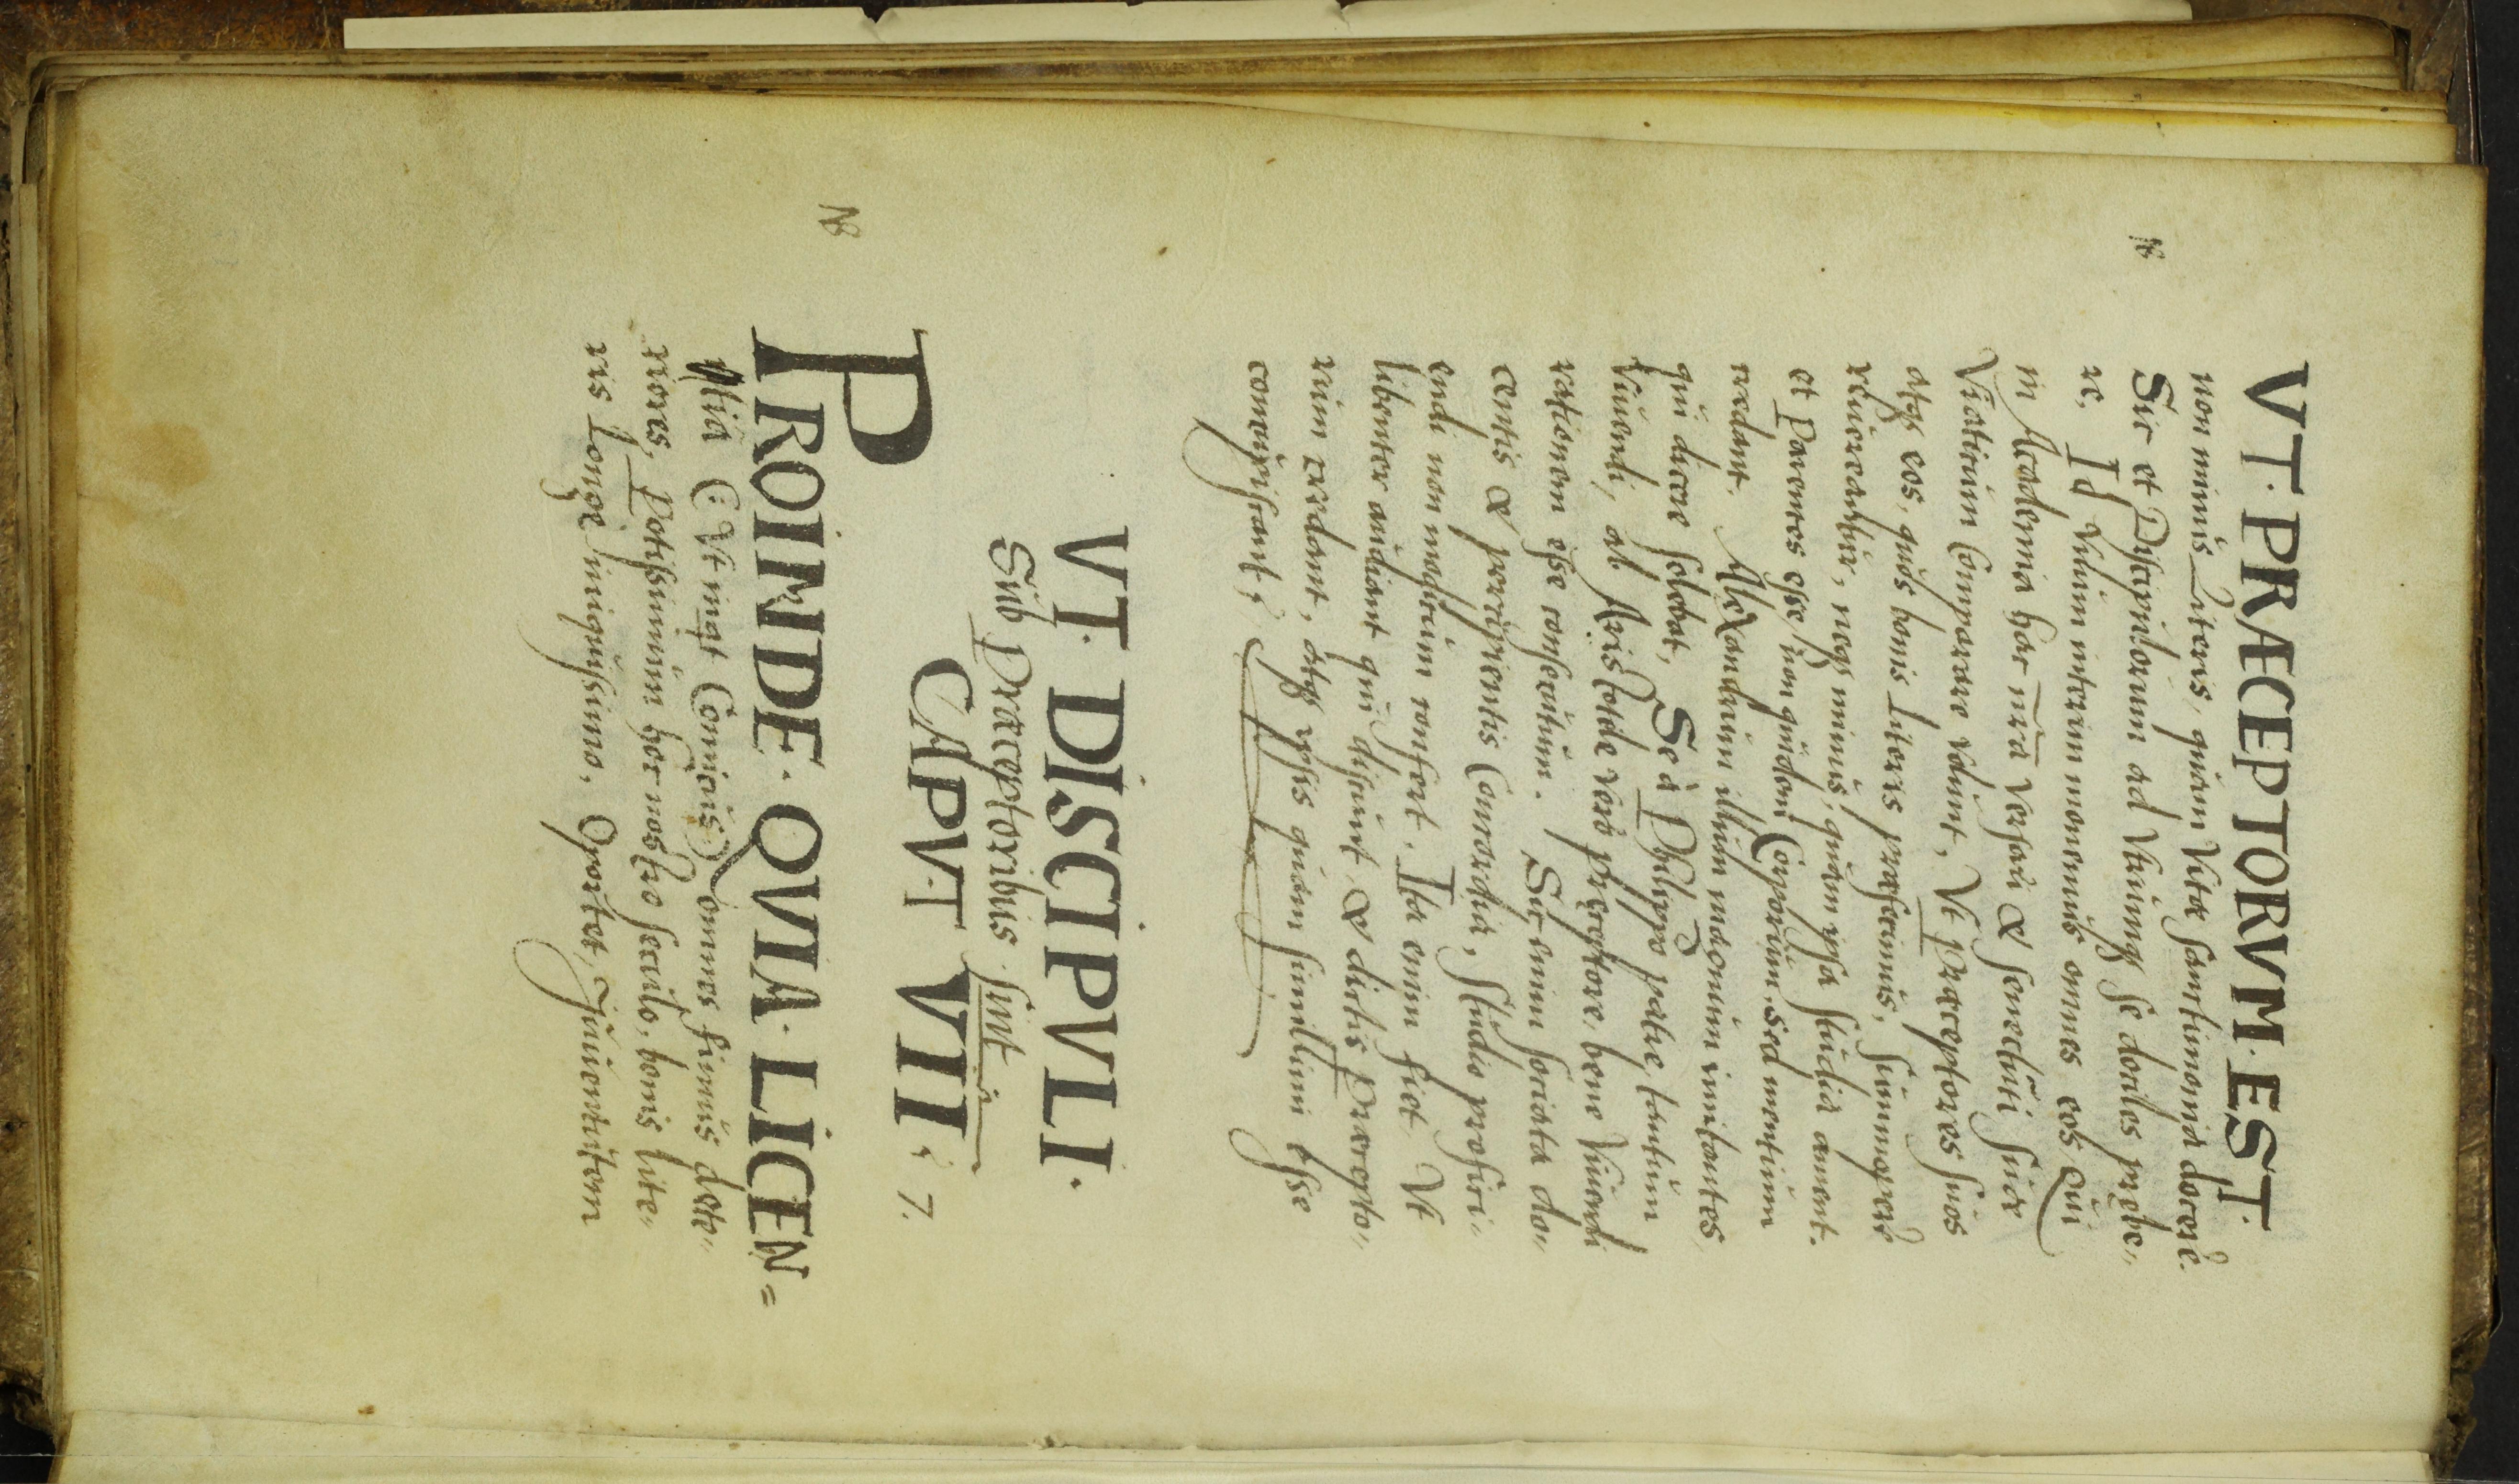 VT. PRÆCEPTORVM. EST.
non minus Literis, quàm Vitæ sanctimonia docere.
Sic et Discipulorum ad Vtrumq; se dociles præbe„
re. Id unum interim monemus omnes eos, Qui
in Academia hac nr̄a versari & seneduti suæ
Viaticum comparare volunt, Vt Præceptores suos
atq; eos, quos bonis Literis præfecimus, summopere
reuereantur, neq; minus, quàm ipsa studia ament.
et Parentes esse, non quidem Corporum, sed mentium
credant. Alexandrum illum magnum imitantes,
qui dicere solebat, Se à Philippo patre, tantum
viuendi, ab Aristotele vero præceptore, bene viuendi
rationem esse consecutum. Sic enim sociata do„
centis & percipientis Concordia, studio profici„
endi non modicum confert. Ita enim fiet Vt
libenter audiant qui discunt & dictis Præcepto„
rum credant, atq; ipsis quàm simillimi esse
concupiscant.
VT. DISCIPVLI.
Sub Præceptoribus sint.
CAPVT VII. 7.
PROINDE. QVIA. LICEN=
tia (Vt inqt Comicus) omnes simus dete„
riores, Potissimum hoc nostro seculo, bonis lite„
ris Longe iniquissimo. Oportet, Iuuentutem